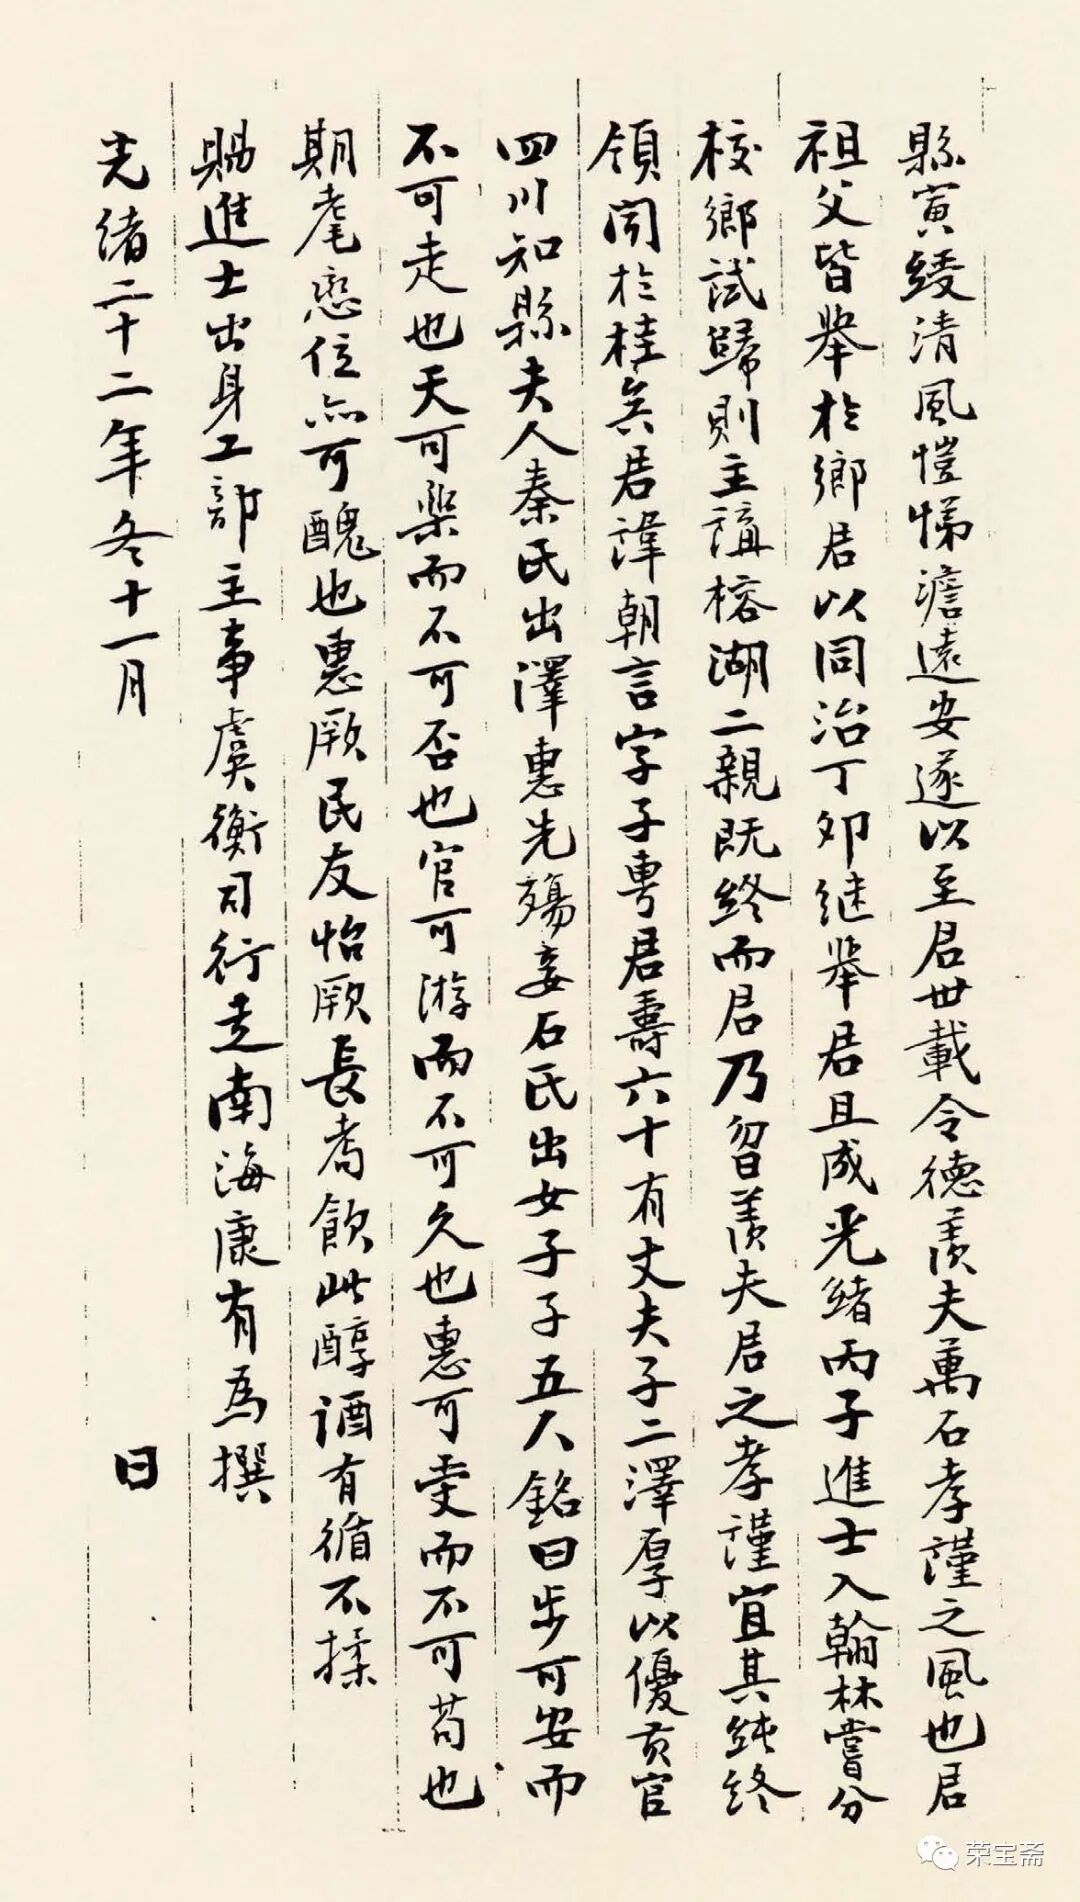 縣寅綾清風愷悌澹遠安遂以至君世載令德羨夫萬石孝謹之風也君
祖父皆舉於鄉君以同治丁卯继舉君且成光緒丙子進士入翰林嘗分
校鄉試歸則主講榕湖二親既終而君乃曶羨夫君之孝謹宜其純終
領聞於桂矣君諱朝言字子專君壽六十有丈夫子二澤厚以優貢官
四川知縣夫人秦氏出澤惠先殤妾石氏出女子子五人銘曰步可安而
不可走也天可樂而不可否也官可游而不可久也惠可受而不可苟也
期耄戀位亦可醜也惠厥民友怡厥長耇飲此醇酒有循不揉
賜進士出身工部主事虞衡司行走南海康有為撰
光緒二十二年冬十一月 日
荣宝斋